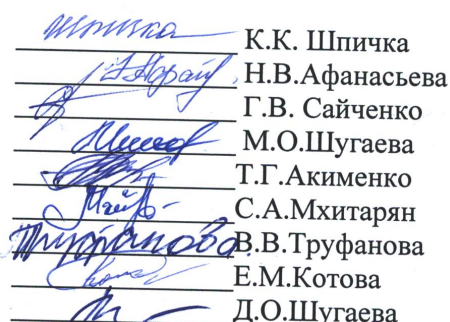 шпичка К.К. Шпичка
Н.В.Афанасьева
Г.В. Сайченко
М.О.Шугаева
Т.Г.Акименко
С.А.Мхитарян
Труфанова В.В.Труфанова
Е.М.Котова
Д.О.Шугаева